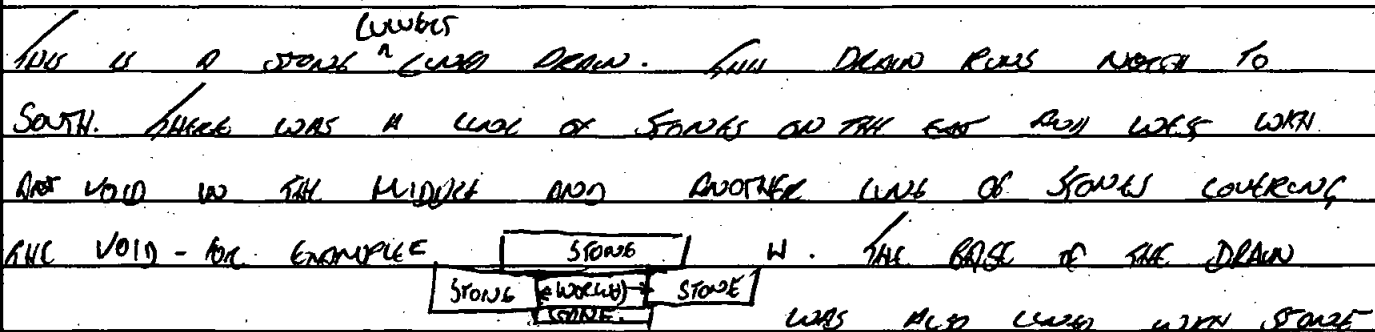 THIS IS A STONE LINED DRAIN. THIS DRAIN RUNS NORTH TO
SOUTH. THERE WAS A LINE OF STONES ON THE EAST AND WEST WITH
VOID IN THE MIDDLE AND ANOTHER LINE OF STONES COVERING
THE VOID - FOR EXAMPLE STONE . THE BASE OF THE DRAIN
STONE STONE
STONE. WAS ALSO LINED WITH STONE